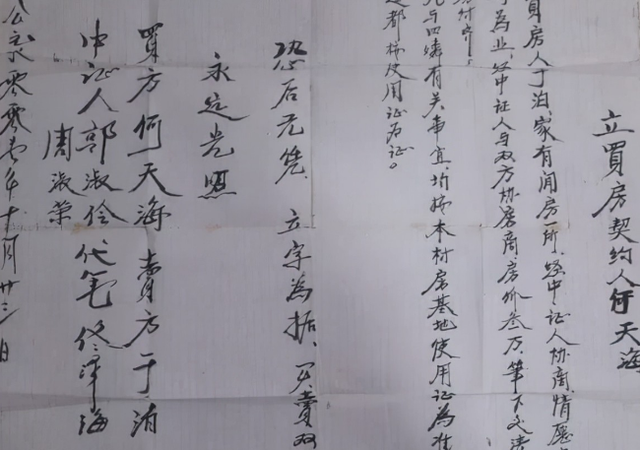 立買房契约人何天海
買房人于泊家有闲房一所经中证人协商情愿
为业经中证人与双方协商房价叁万笔下交清
元与四邻有关事宜均按本村房基地使用证为准
都按使用证为证。
恐后无凭 立字为据、买賣双
永远光照
買方何天海 賣方于泊
中证人郭淑伶 代笔佟泽海
周淑荣
公元零零壹年十月廿三日